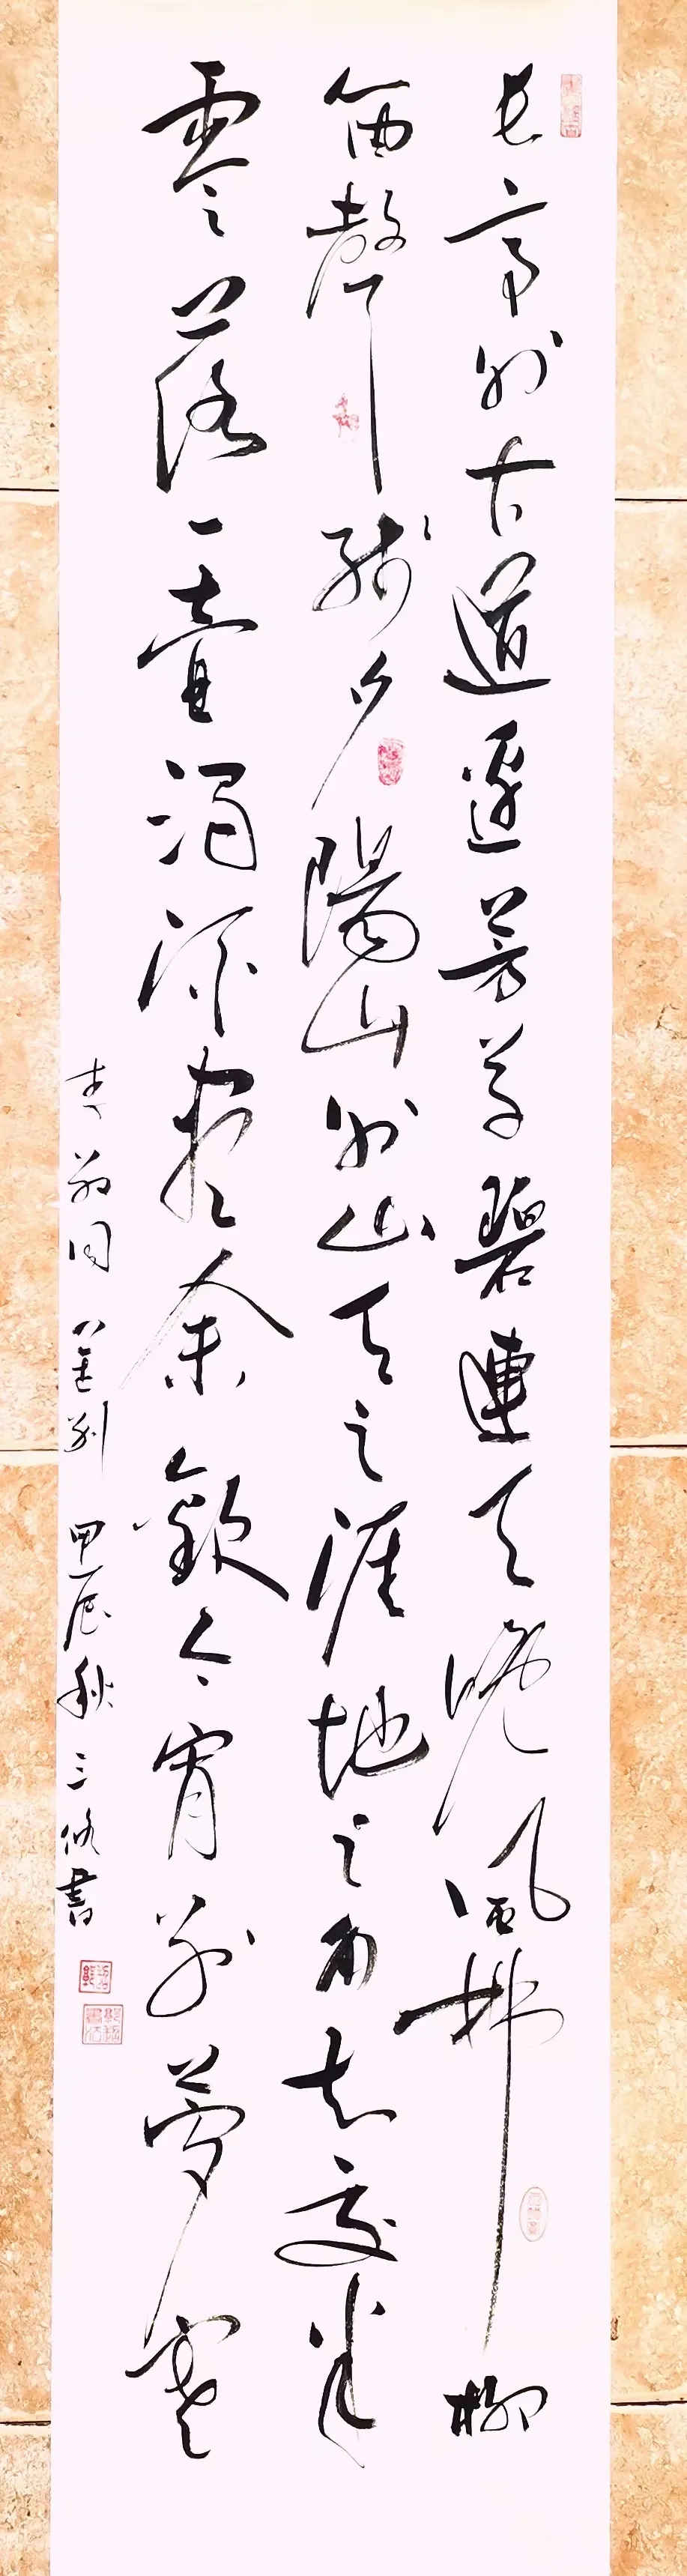 長亭外古道邊芳草碧連天晚風拂柳
笛聲殘夕陽山外山天之涯地之角知交半
零落一壺濁酒盡余歡今宵別夢寒
李叔同 送別 甲辰秋 三修書